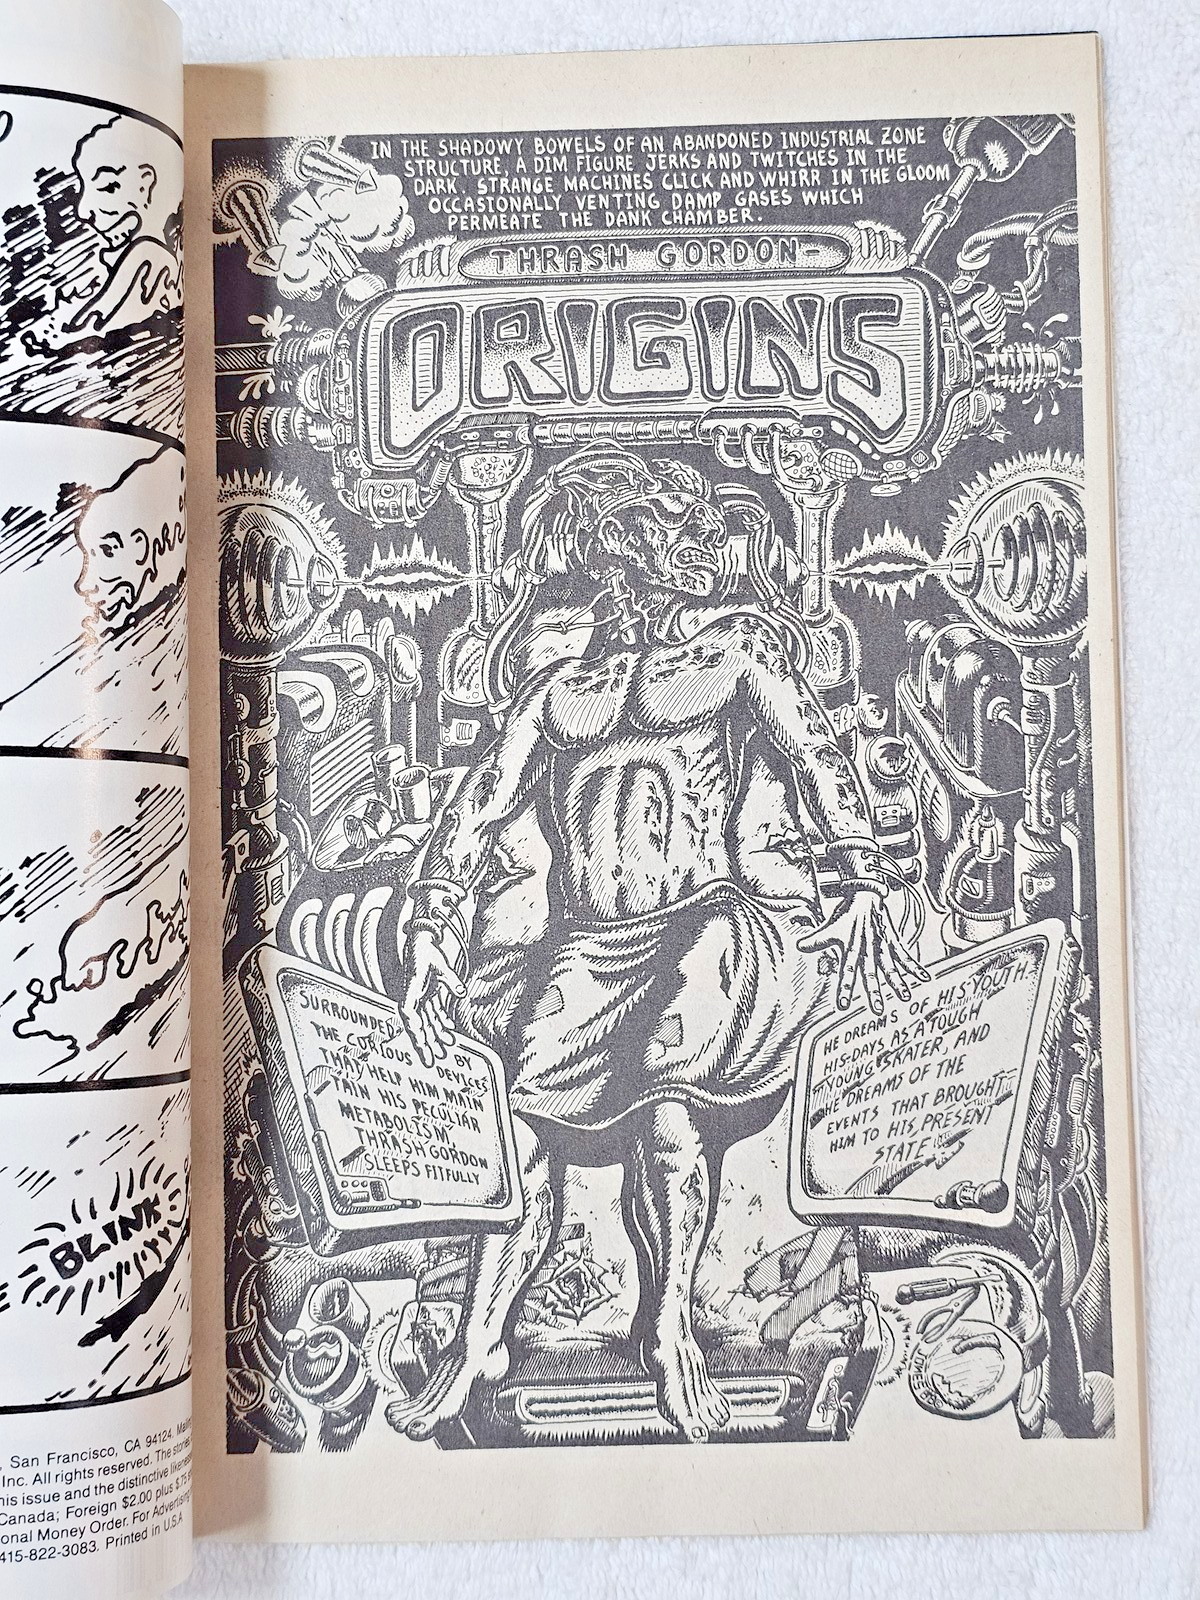 IN THE SHADOWY BOWELS OF AN ABANDONED INDUSTRIAL ZONE
STRUCTURE, A DIM FIGURE JERKS AND TWITCHES IN THE
DARK. STRANGE MACHINES CLICK AND WHIRR IN THE GLOOM
OCCASIONALLY VENTING DAMP GASES WHICH
PERMEATE THE DANK CHAMBER.
THRASH GORDON-
ORIGINS
SURROUNDED BY
THE CURIOUS DEVICES
THAT HELP HIM MAIN
TAIN HIS PECULIAR
METABOLISM,
THRASH GORDON
SLEEPS FITFULLY
HE DREAMS OF HIS YOUTH-
HIS DAYS AS A TOUGH
YOUNG SKATER, AND
HE DREAMS OF THE
EVENTS THAT BROUGHT
HIM TO HIS PRESENT
STATE
JONES
BLINK
, San Francisco, CA 94124.
Inc. All rights reserved. The
his issue and the distinctive
Canada; Foreign $2.00 plus $.75
onal Money Order. For Advertising
415-822-3083. Printed in U.S.A